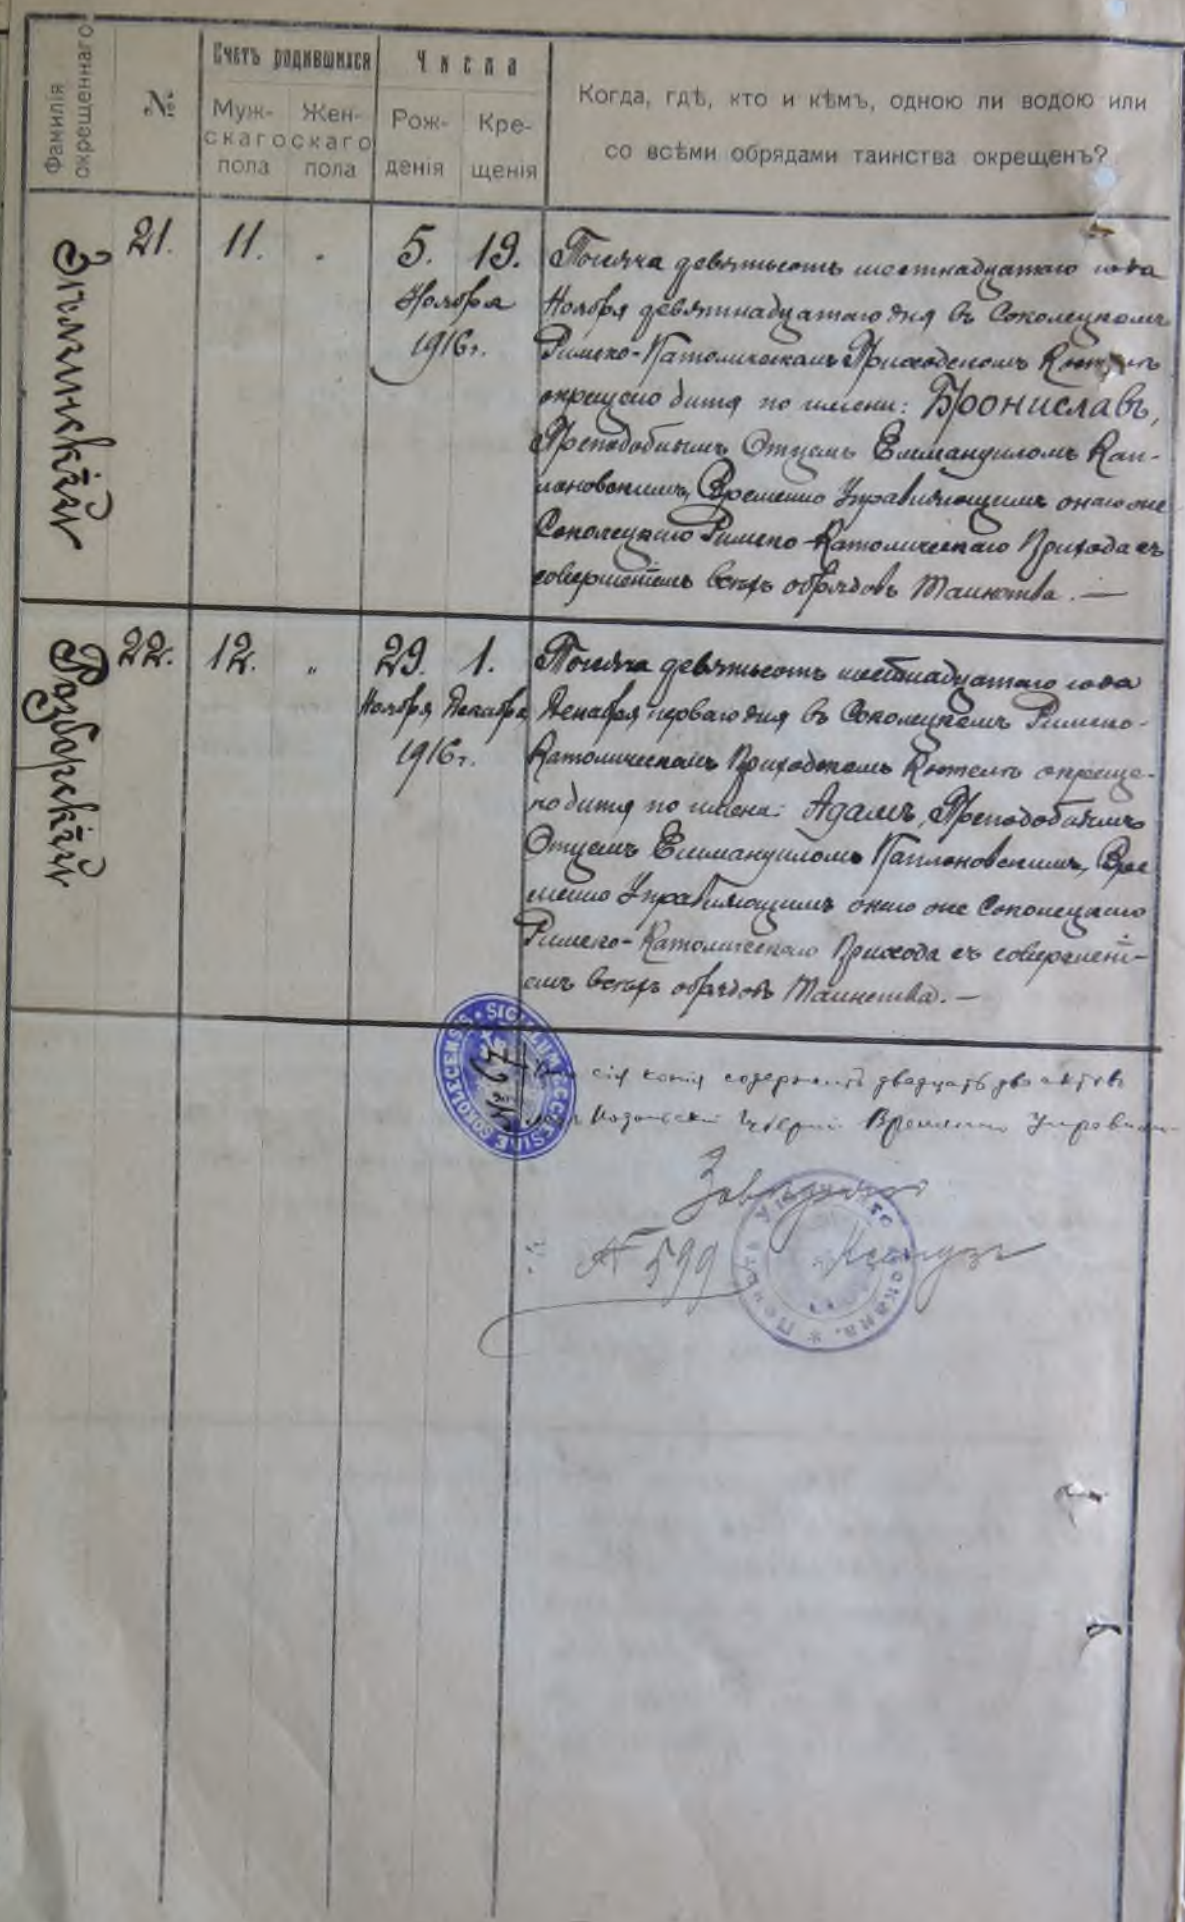 Фамилія окрещеннаго
№№
Счетъ родившихся
Мужскаго пола
Женскаго пола
Числа
Рожденія
Крещенія
Когда, гдѣ, кто и кѣмъ, одною ли водою или
со всѣми обрядами таинства окрещенъ?
21.
11.
5.
19.
Ноября
1916 г.
Тысяча девятьсотъ шестнадцатаго года
Ноября девятнадцатаго дня въ Соколецкомъ
Римско-Католическомъ Приходскомъ
окрещено дитя по имени: Брониславъ,
Преподобнымъ Отцемъ Еммануиломъ Кап-
лановскимъ, Временно Управляющимъ онаго же
Соколецкаго Римско-Католическаго Прихода съ
совершеніемъ всѣхъ обрядовъ Таинства. —
Разборскій
22.
12.
„
29.
1.
Ноября
Декабря
1916 г.
Тысяча девятьсотъ шестнадцатаго года
Декабря перваго дня въ Соколецкомъ Римско-
Католическомъ Приходскомъ Костелѣ окреще-
но дитя по имени: Адамъ, Преподобнымъ
Отцемъ Еммануиломъ Каплановскимъ, Вре-
менно Управляющимъ онаго же Соколецкаго
Римско-Католическаго Прихода съ совершені-
емъ всѣхъ обрядовъ Таинства. —
SIGILLUM ECCLESIAE SOKOLECENSIS
сія копія содержитъ двадцать два актовъ
Губерніи Временно
№ 599